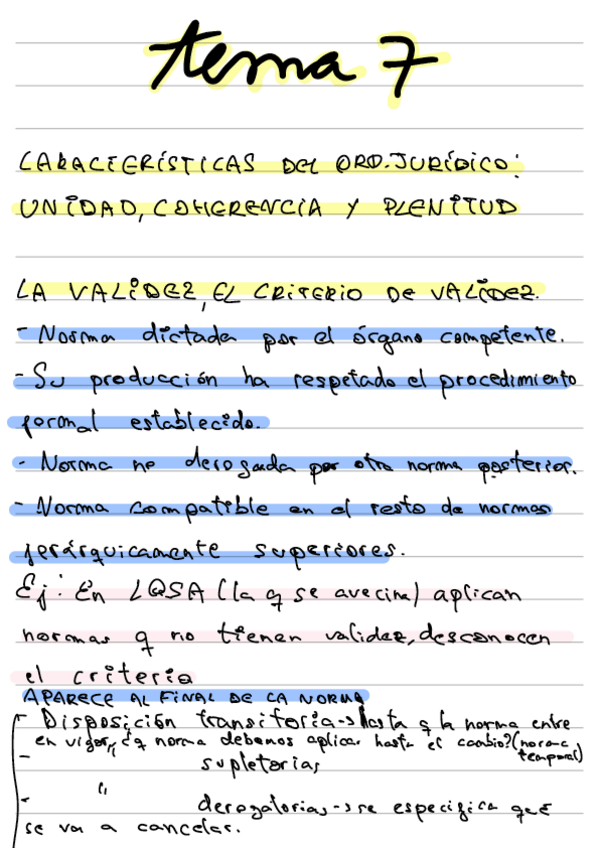 tema 7
CARACTERÍSTICAS DEL ORD. JURÍDICO:
UNIDAD, COHERENCIA Y PLENITUD
LA VALIDEZ, EL CRITERIO DE VALIDEZ.
- Norma dictada por el órgano competente.
- Su producción ha respetado el procedimiento
formal establecido.
- Norma no derogada por otra norma posterior.
- Norma compatible en el resto de normas
jerárquicamente superiores.
Ej: En LQSA (la q se avecina) aplican
normas q no tienen validez, desconocen
el criterio
APARECE AL FINAL DE LA NORMA
- Disposición transitoria -> hasta q la norma entre
en vigor, ¿q norma debemos aplicar hasta el cambio? (norma temporal)
- supletorias
- " derogatorias -> se especifica que
se va a cancelar.